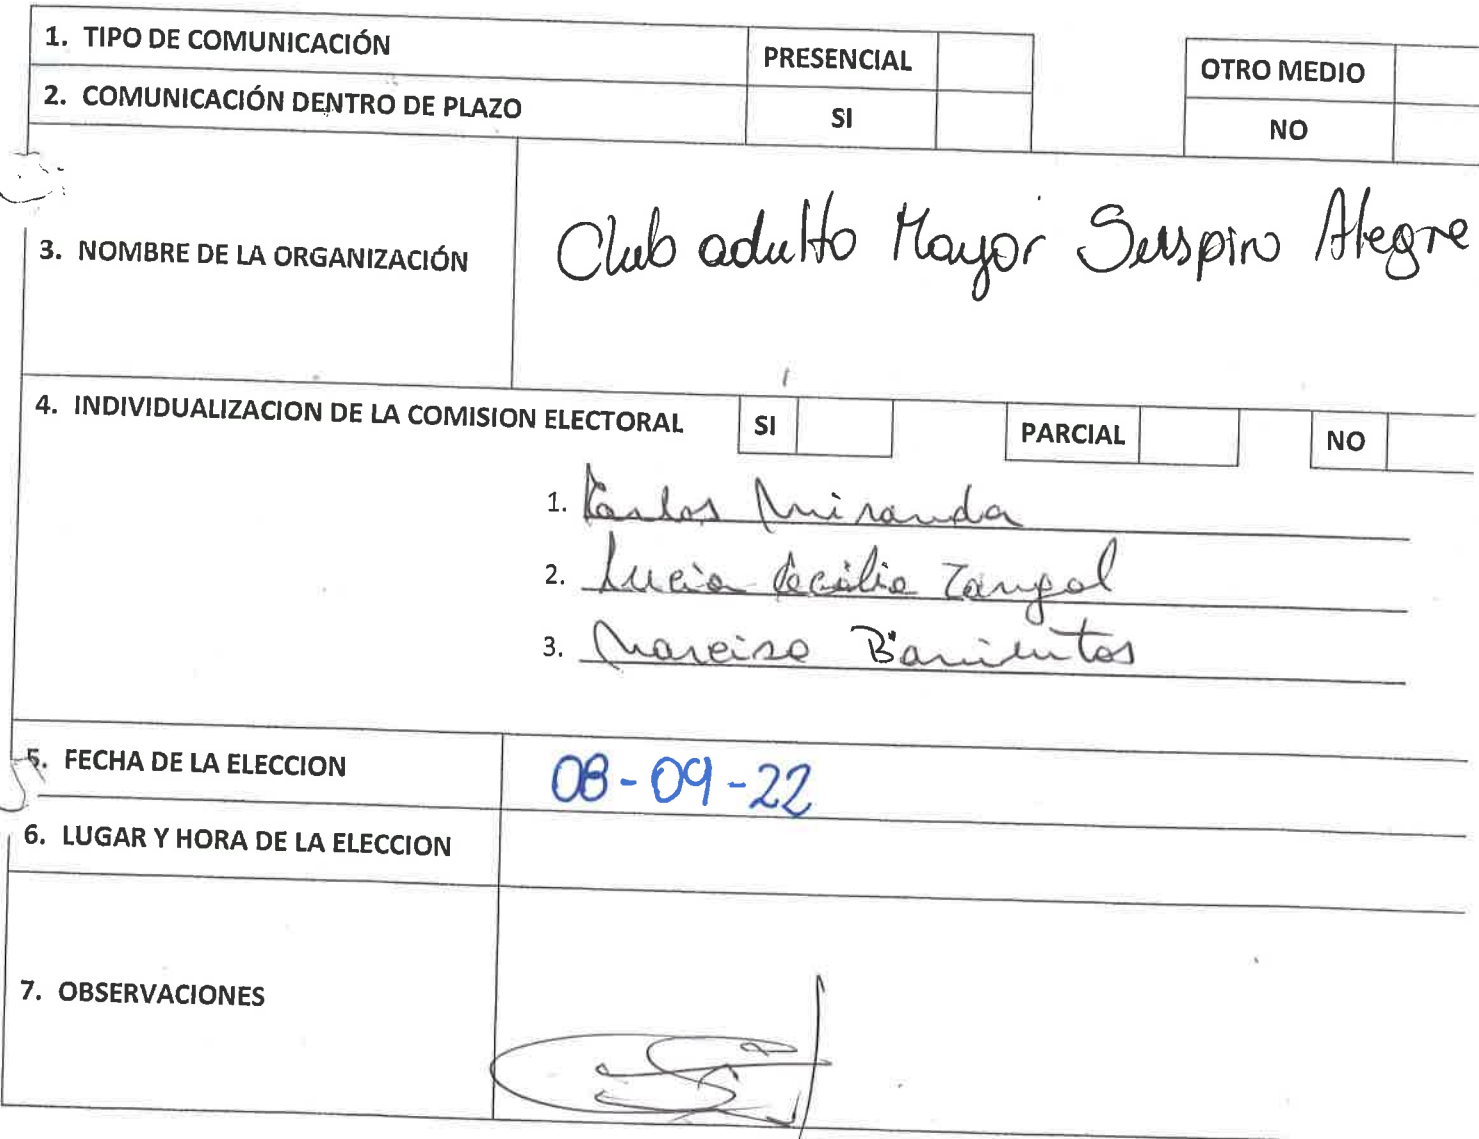 1. TIPO DE COMUNICACIÓN PRESENCIAL OTRO MEDIO
2. COMUNICACIÓN DENTRO DE PLAZO SI NO
3. NOMBRE DE LA ORGANIZACIÓN Club adulto Mayor Suspiro Alegre
4. INDIVIDUALIZACION DE LA COMISION ELECTORAL SI PARCIAL NO
1. Carlos Miranda
2. Lucia Cecilia
3. Narciso Barrientos
5. FECHA DE LA ELECCION 08-09-22
6. LUGAR Y HORA DE LA ELECCION
7. OBSERVACIONES